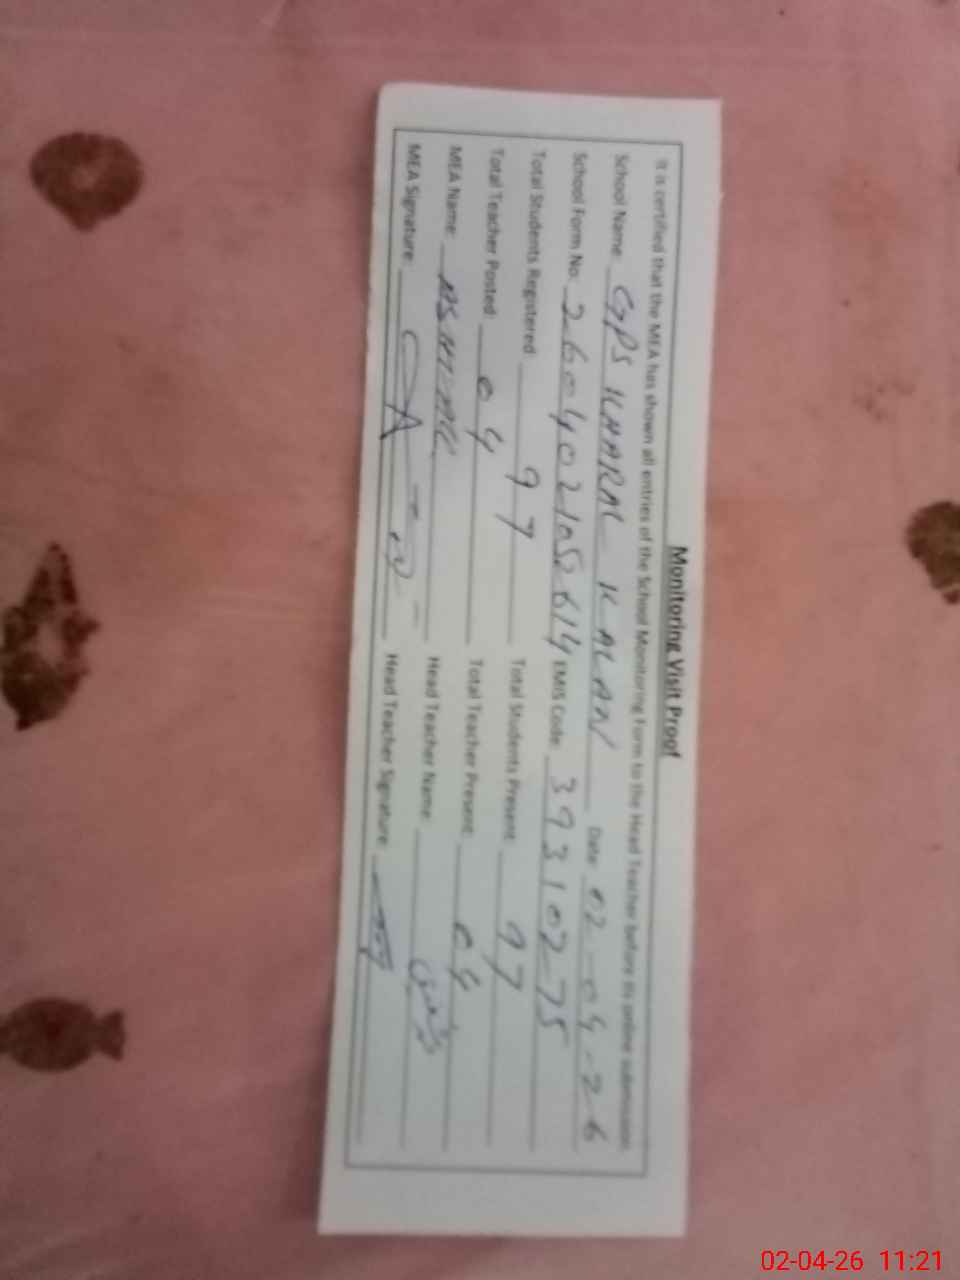 Monitoring Visit Proof
It is certified that the MEA has shown all entries of the School Monitoring Form to the Head Teacher before its online submission.
School Name: GPS KHARAL KALAN Date: 02-04-26
School Form No: 2604021052614 EMIS Code: 39310275
Total Students Registered 97 Total Students Present: 97
Total Teacher Posted: 04 Total Teacher Present: 04
MEA Name: Head Teacher Name:
MEA Signature: Head Teacher Signature:
02-04-26 11:21